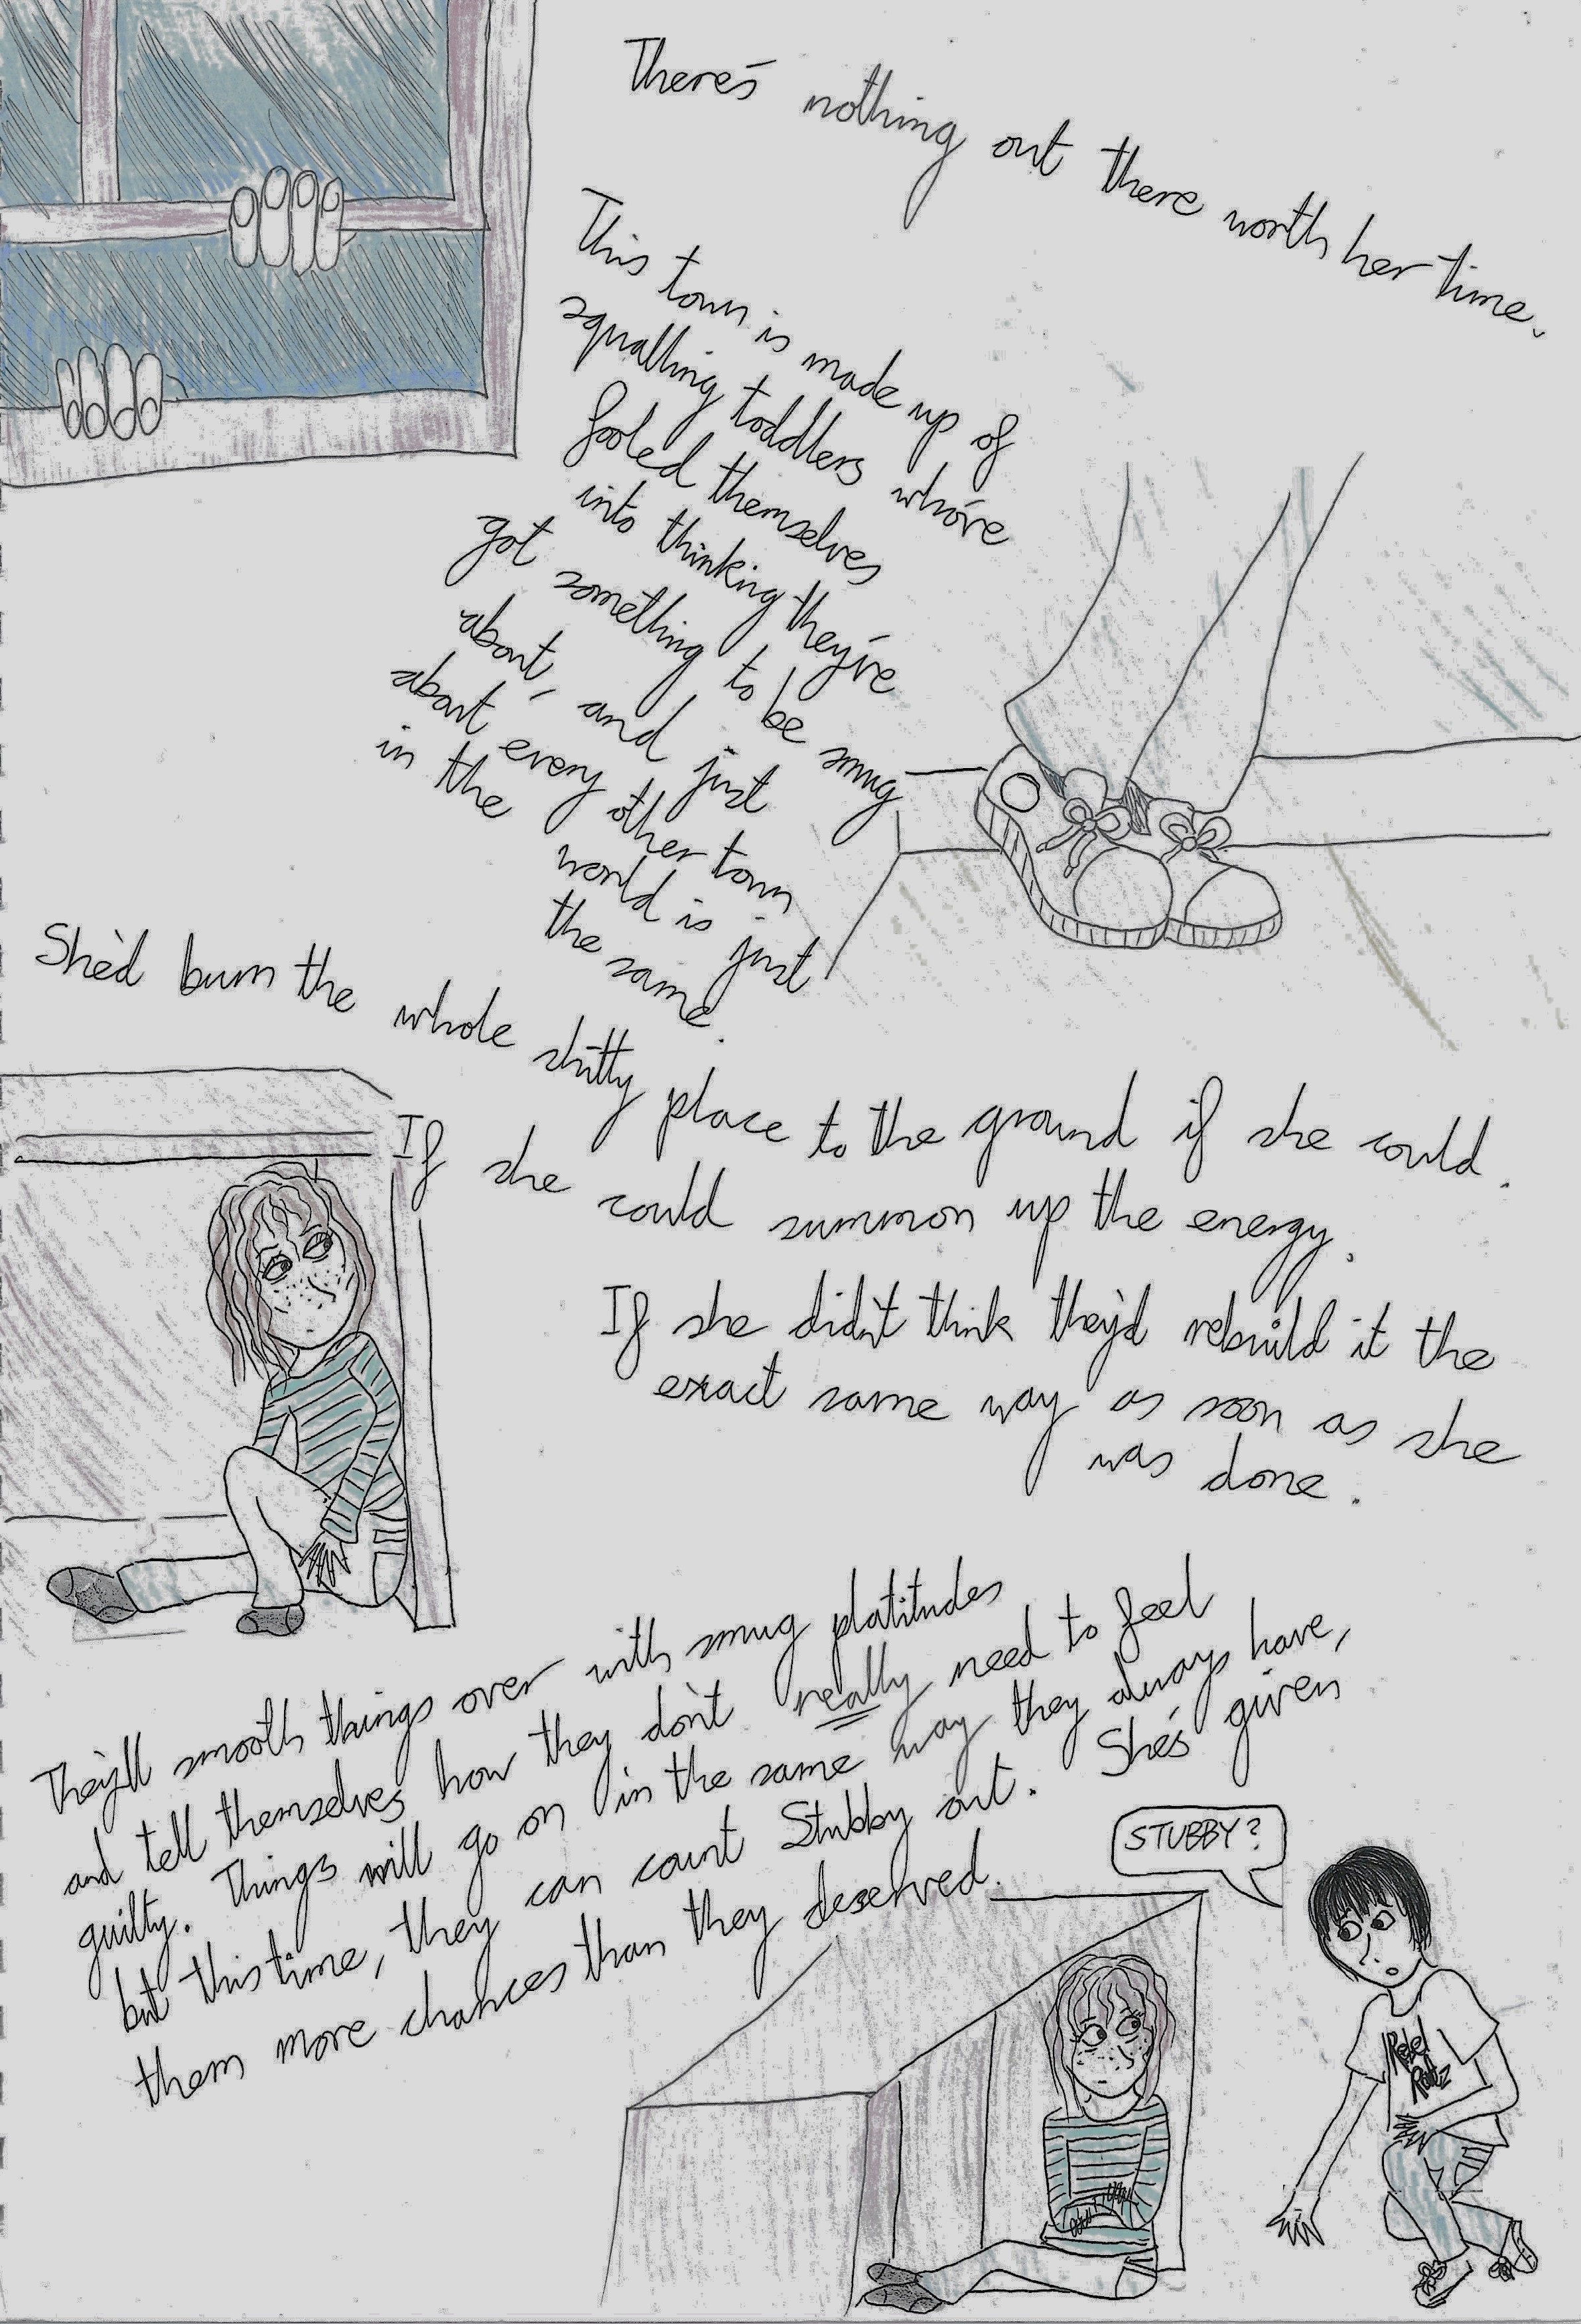 There's nothing out there worth her time.
This town is made up of
squalling toddlers who're
fooled themselves
into thinking they're
got something to be smug
about, and just
about every other town
in the world is just
the same.
She'd burn the whole shitty place to the ground if she could.
If she could summon up the energy.
If she didn't think they'd rebuild it the
exact same way as soon as she
was done.
They'll smooth things over with smug platitudes
and tell themselves how they don't really need to feel
guilty. Things will go on in the same way they always have,
but this time, they can count Stubby out. She's given
them more chances than they deserved.
STUBBY?
Rebel